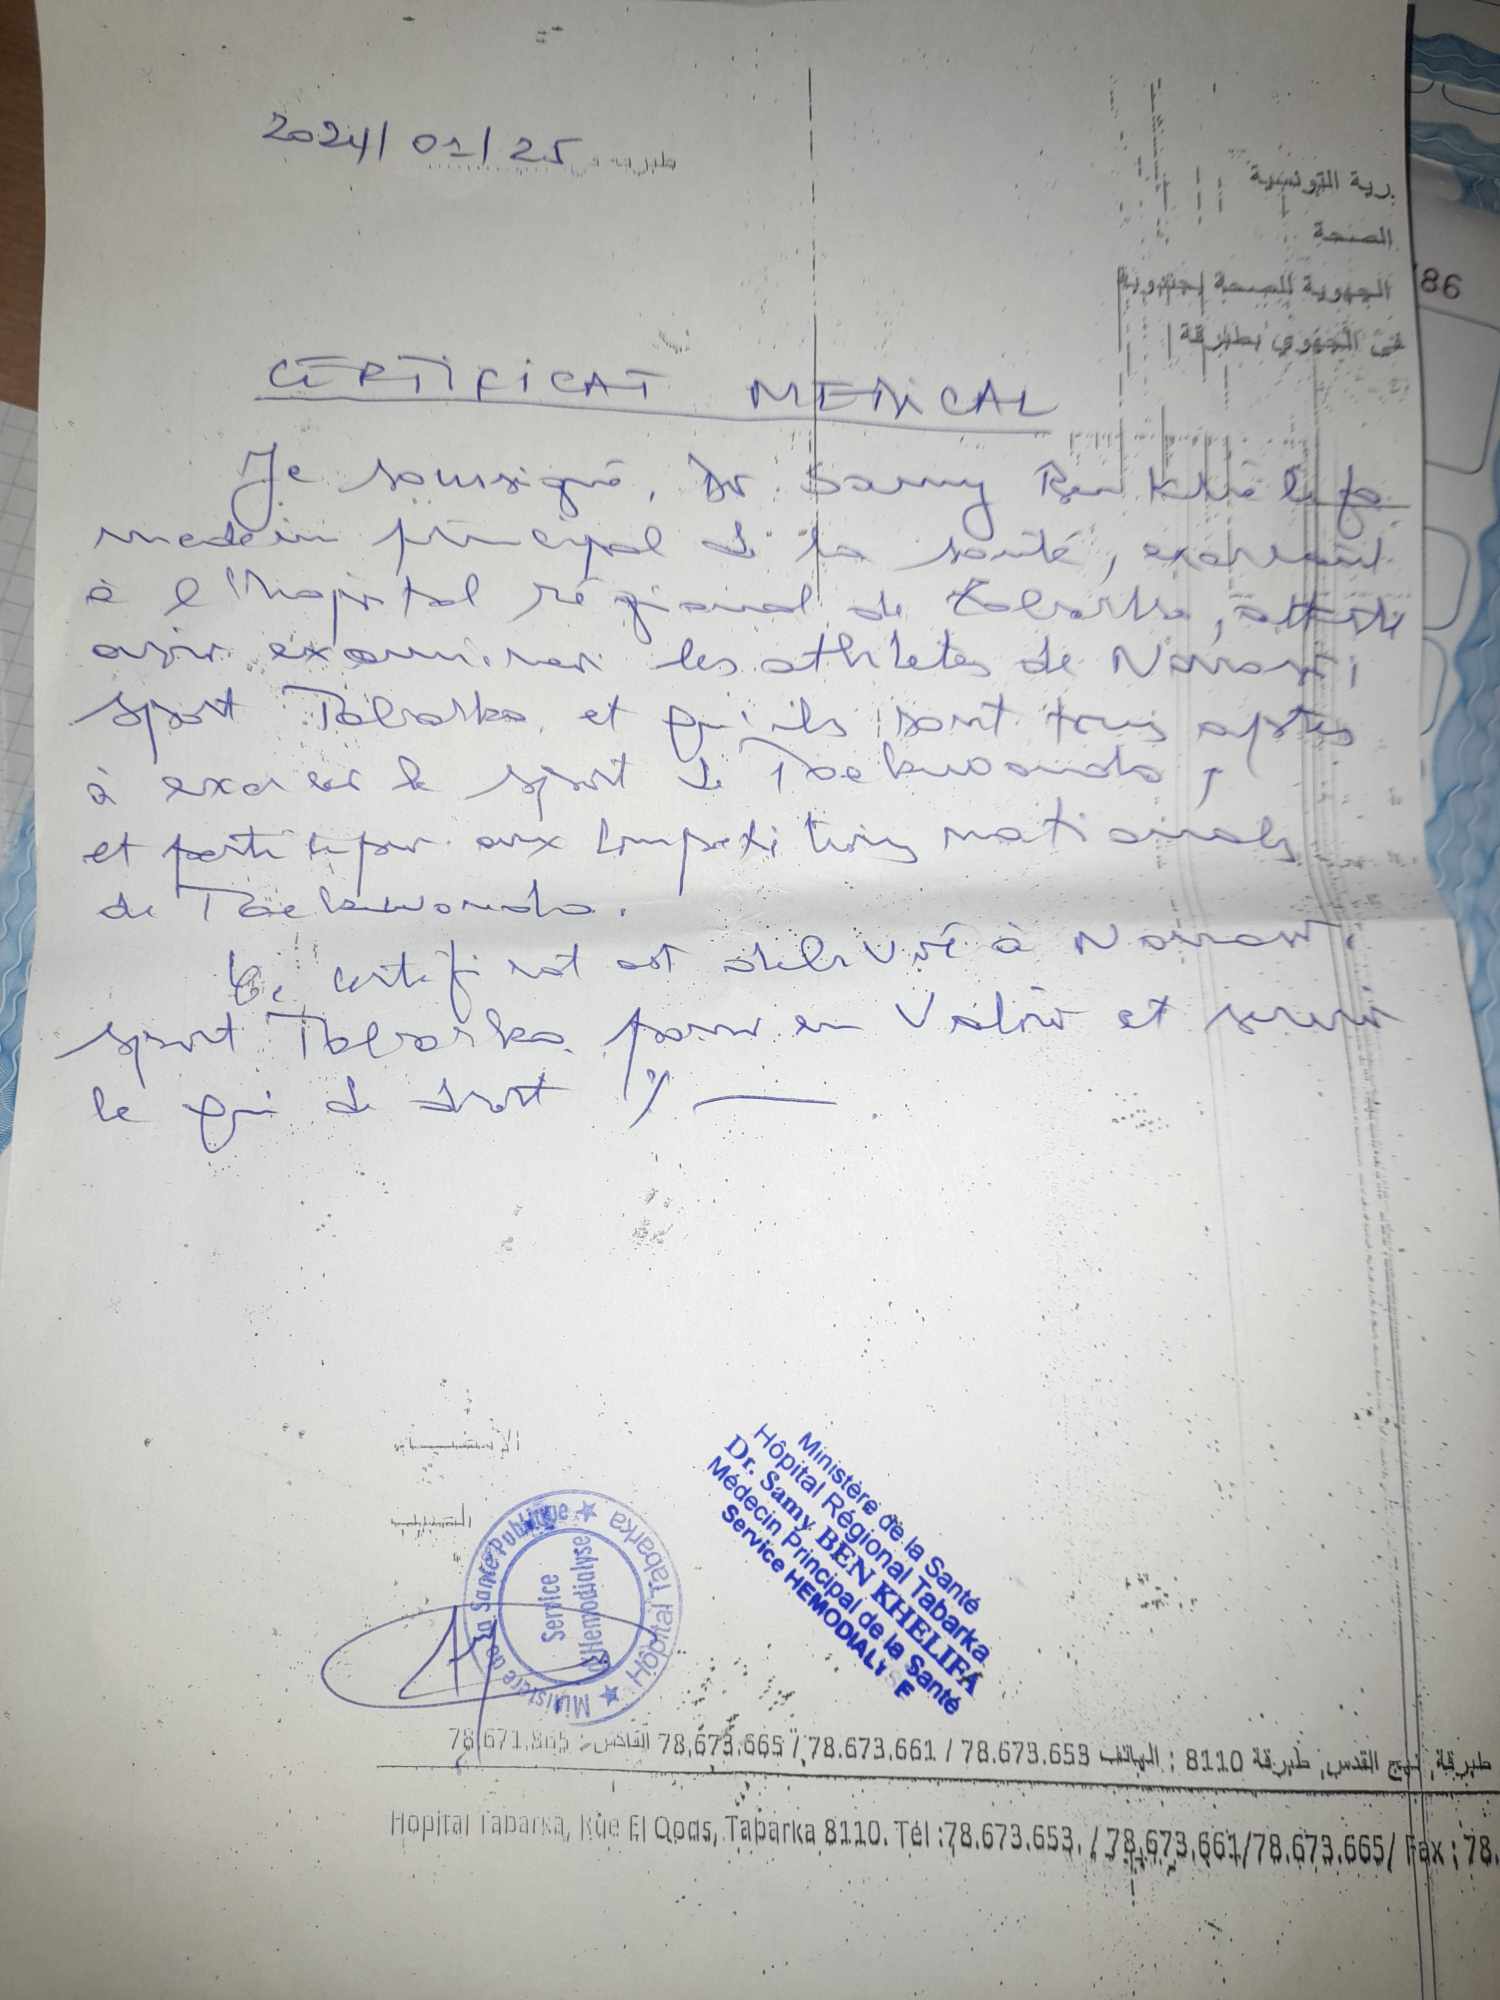 طبرقة في 2024/01/25
رية التونسية
الصحة
الجهوية للصحة بجندوبة
فى الجهوي بطبرقة
86
CERTIFICAT MEDICAL
Je soussigné, Dr Samy Ben Khélifa
medecin principal de la santé, exerçant
à l'hopital régional de Tabarka, atteste
avoir examiner les athletes de
sport Tabarka et qu'ils sont tous aptes
à exercer le sport de Taekwondo,
et participer aux competitions nationals
de Taekwondo.
Ce certificat est delivré à
sport Tabarka pour en valoir et servir
le qui de droit
Ministère de la Santé Publique ★ Hôpital Tabarka ★
Service
Hemodialyse
Ministère de la Santé
Hôpital Régional Tabarka
Dr. Samy BEN KHELIFA
Médecin Principal de la Santé
Service HEMODIALYSE
طبرقة, نهج القدس, طبرقة 8110 : الهاتف 78.673.653 / 78.673.661 / 78.673.665 الفاكس: 78.671.865
Hopital Tabarka, Rue El Qods, Tabarka 8110. Tél :78.673.653. / 78.673.661/78.673.665/ Fax : 78.